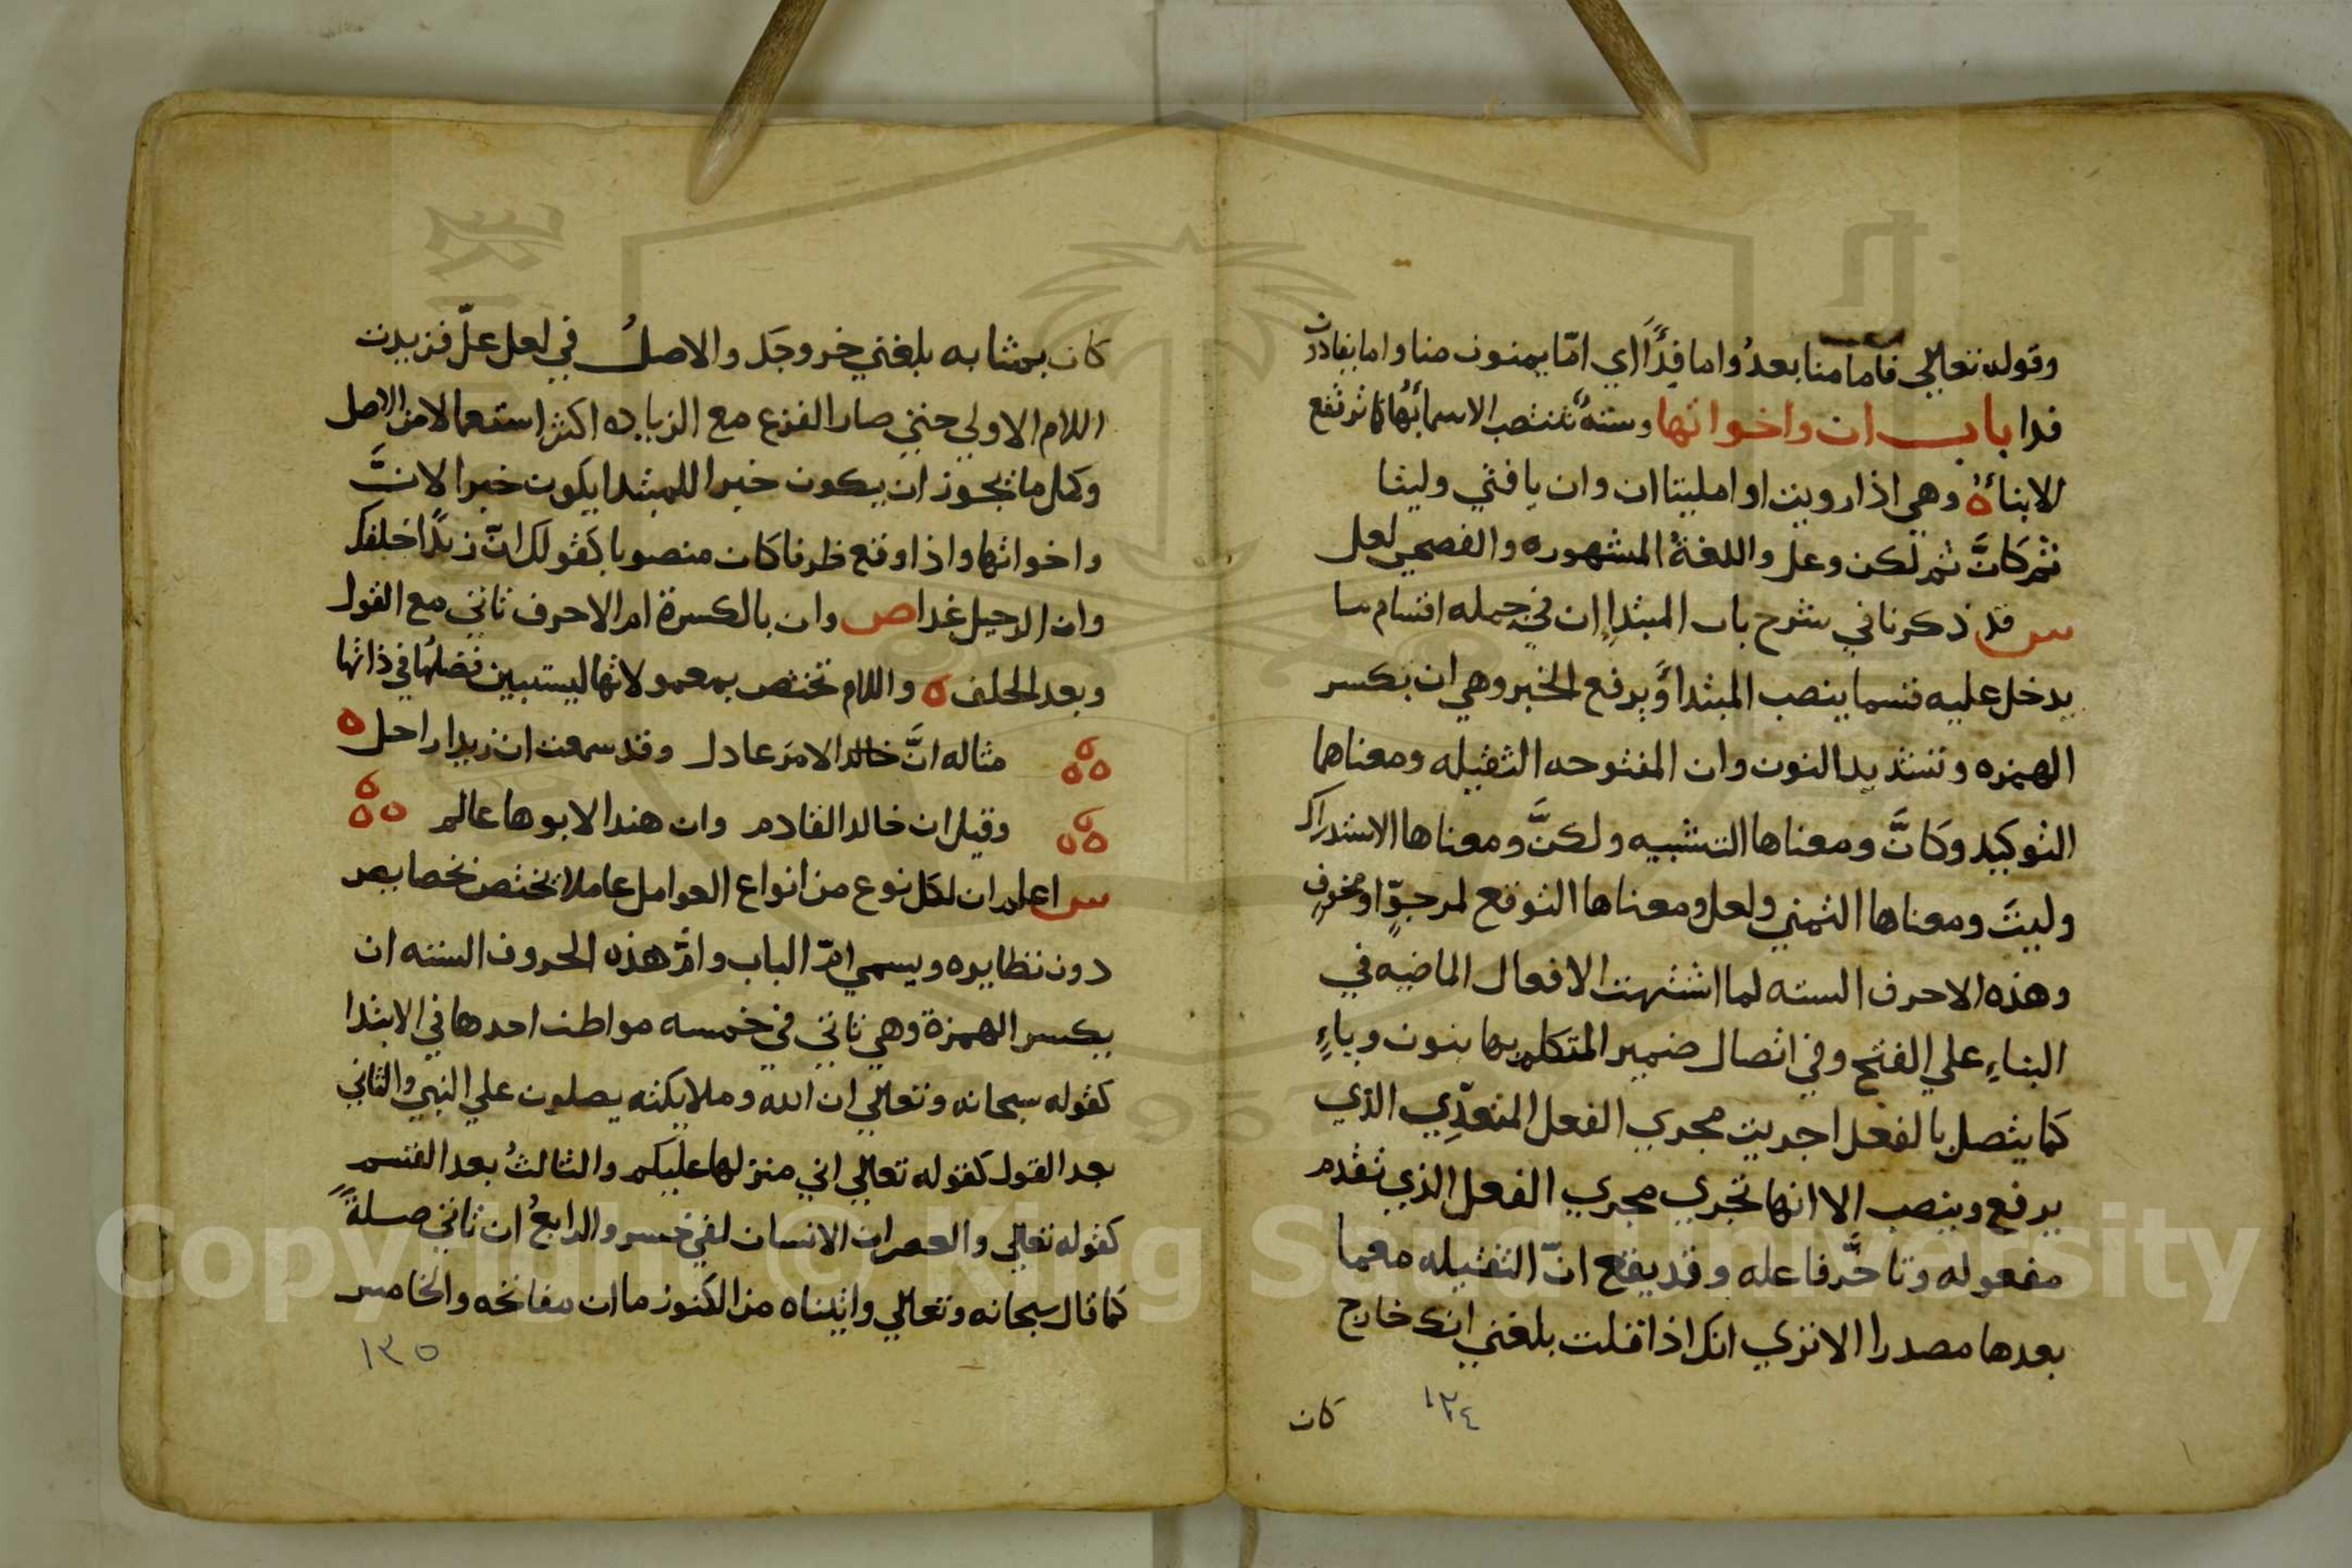 وقوله تعالي فاما منا بعدُ واما فِدًاَ اي امّا يمنون منا واما يفادون
فدا باب ان واخواتها وستةٌ تنتصب الاسماءُ بها كما ترتفع
للابناءُ ٥ وهي اذا رويت او امليتا ان وان يا فتي وليتا
ثم كانَّ ثم لكن وعل واللغةُ المشهوره والفصحي لعل
س قد ذكرنا في شرح باب المبتداءِ ان في جمله اقسام ما
يدخل عليه قسما ينصب المبتدا وَيرفع الخبر وهي ان بكسر
الهمزه وتشديد النون وان المفتوحه الثقيله ومعناهما
التوكيد وكانَّ ومعناها التشبيه ولكنَّ ومعناها الاستدراك
وليتَ ومعناها التمني ولعل ومعناها التوقع لمرجوٍّ او مخوفٍ
وهذه الاحرف السته لما اشبهت الافعال الماضيه في
البناءِ علي الفتح وفي اتصال ضمير المتكلم بها بنون وياءٍ
كما يتصل بالفعل اجريت مجري الفعل المتعدِّي الذي
يرفع وينصب الا انها تجري مجري الفعل الذي تقدم
مفعوله وتاخَّر فاعله وقد يقع انّ الثقيله معما
بعدها مصدرا الا تري انك اذا قلت بلغني انك خارج
كان
١٣٤
كان بمثابه بلغني خروجَك والاصلُ في لعل علّ فزيدت
اللام الاولي حتي صار الفرع مع الزياده اكثر استعمالا من الاصل
وكل ما يجوز ان يكون خبرا للمبتدا يكون خبرا لانَّ
واخواتها واذا وقع ظرفا كان منصوبا كقولك انّ زيدًا خلفك
وان الرحيل غدا ص وان بالكسرة ام الاحرف تاتي مع القول
وبعد الحلف ٥ واللام تختص بمعمولاتها ليستبين فضلُها في ذاتها
مثاله انَّ خالد الامرَ عادل وقد سمعت ان زيدا راحل ٥
وقيل ان خالدا لقادم وان هندا لابوها عالم
س اعلم ان لكل نوع من انواع العوامل عاملا يختص بخصايص
دون نظايره ويسمي امّ الباب وامُّ هذه الحروف السته ان
بكسر الهمزة وهي تاتي في خمسه مواطن احدها في الابتدا
كقوله سبحانه وتعالي ان الله وملايكته يصلون علي النبي والثاني
بعد القول كقوله تعالي اني منزلها عليكم والثالثُ بعد القسم
كقوله تعالي والعصر ان الانسان لفي خسر والرابعُ ان تاتي صلةً
كما قال سبحانه وتعالي واتيناه من الكنوز ما ان مفاتحه والخامس
١٣٥
Copyright © King Saud University